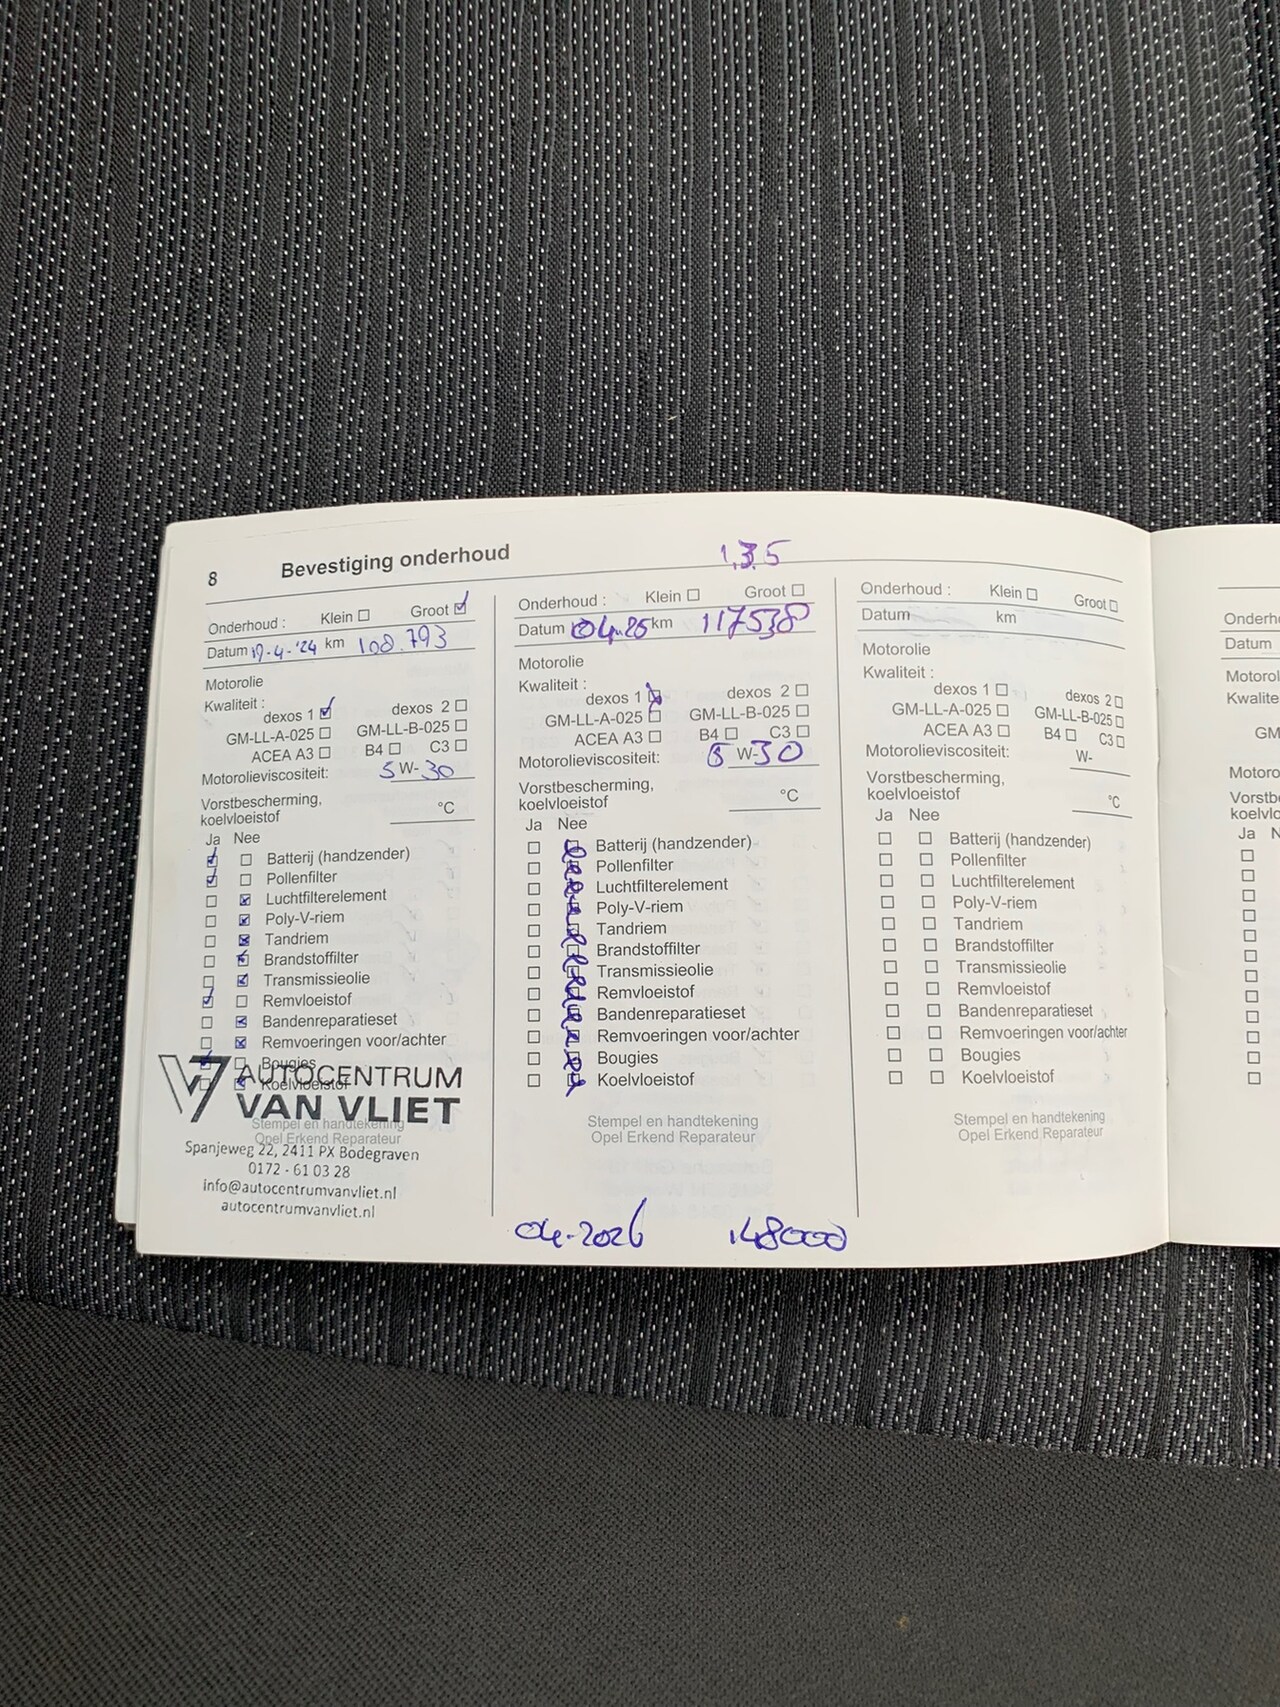 8 Bevestiging onderhoud 1.3.5
Onderhoud : Klein Groot
Datum 19-4-'24 km 108.793
Motorolie
Kwaliteit :
dexos 1 dexos 2
GM-LL-A-025 GM-LL-B-025
ACEA A3 B4 C3
Motorolieviscositeit: 5 W-30
Vorstbescherming,
koelvloeistof °C
Ja Nee
Batterij (handzender)
Pollenfilter
Luchtfilterelement
Poly-V-riem
Tandriem
Brandstoffilter
Transmissieolie
Remvloeistof
Bandenreparatieset
Remvoeringen voor/achter
Bougies
Koelvloeistof
AUTOCENTRUM
VAN VLIET
Stempel en handtekening
Opel Erkend Reparateur
Spanjeweg 22, 2411 PX Bodegraven
0172 - 61 03 28
info@autocentrumvanvliet.nl
autocentrumvanvliet.nl
Onderhoud : Klein Groot
Datum 04-25 km 117538
Motorolie
Kwaliteit :
dexos 1 dexos 2
GM-LL-A-025 GM-LL-B-025
ACEA A3 B4 C3
Motorolieviscositeit: 5 W-30
Vorstbescherming,
koelvloeistof °C
Ja Nee
Batterij (handzender)
Pollenfilter
Luchtfilterelement
Poly-V-riem
Tandriem
Brandstoffilter
Transmissieolie
Remvloeistof
Bandenreparatieset
Remvoeringen voor/achter
Bougies
Koelvloeistof
Stempel en handtekening
Opel Erkend Reparateur
04-2026 148000
Onderhoud : Klein Groot
Datum km
Motorolie
Kwaliteit :
dexos 1 dexos 2
GM-LL-A-025 GM-LL-B-025
ACEA A3 B4 C3
Motorolieviscositeit: W-
Vorstbescherming,
koelvloeistof °C
Ja Nee
Batterij (handzender)
Pollenfilter
Luchtfilterelement
Poly-V-riem
Tandriem
Brandstoffilter
Transmissieolie
Remvloeistof
Bandenreparatieset
Remvoeringen voor/achter
Bougies
Koelvloeistof
Stempel en handtekening
Opel Erkend Reparateur
Datum
Ja